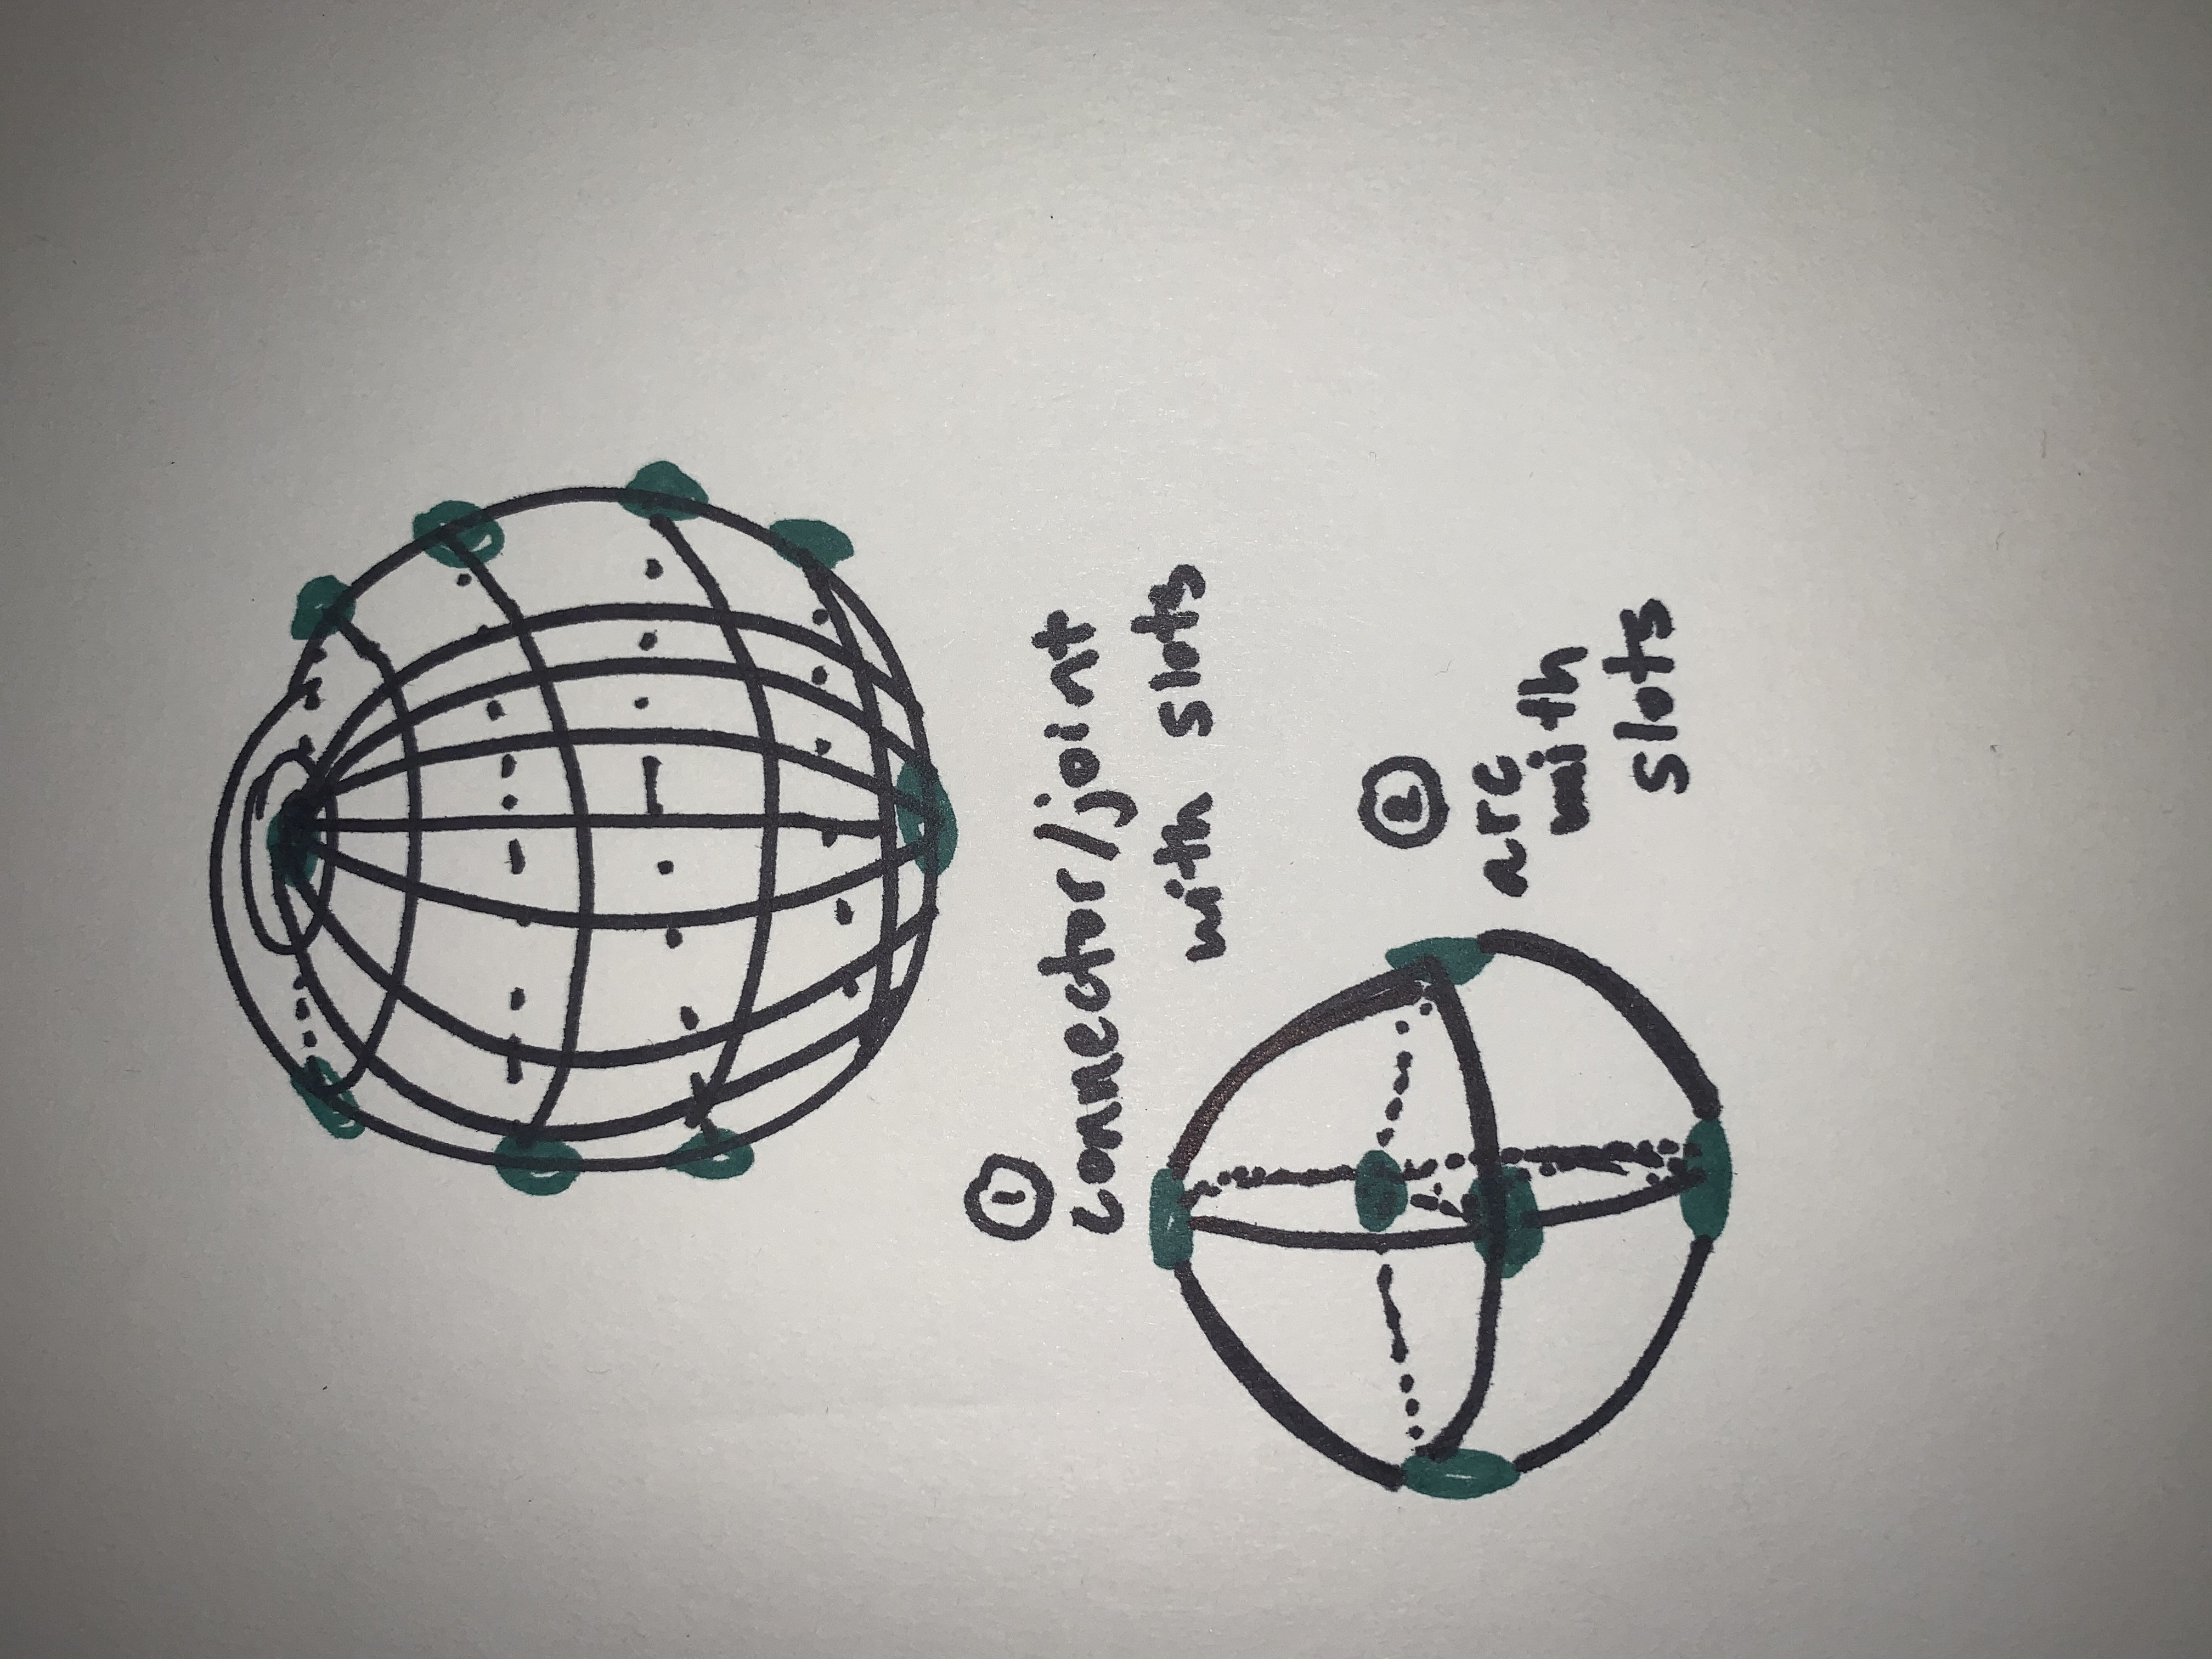 1
connector/joint
with slots
2
arc
with
slots